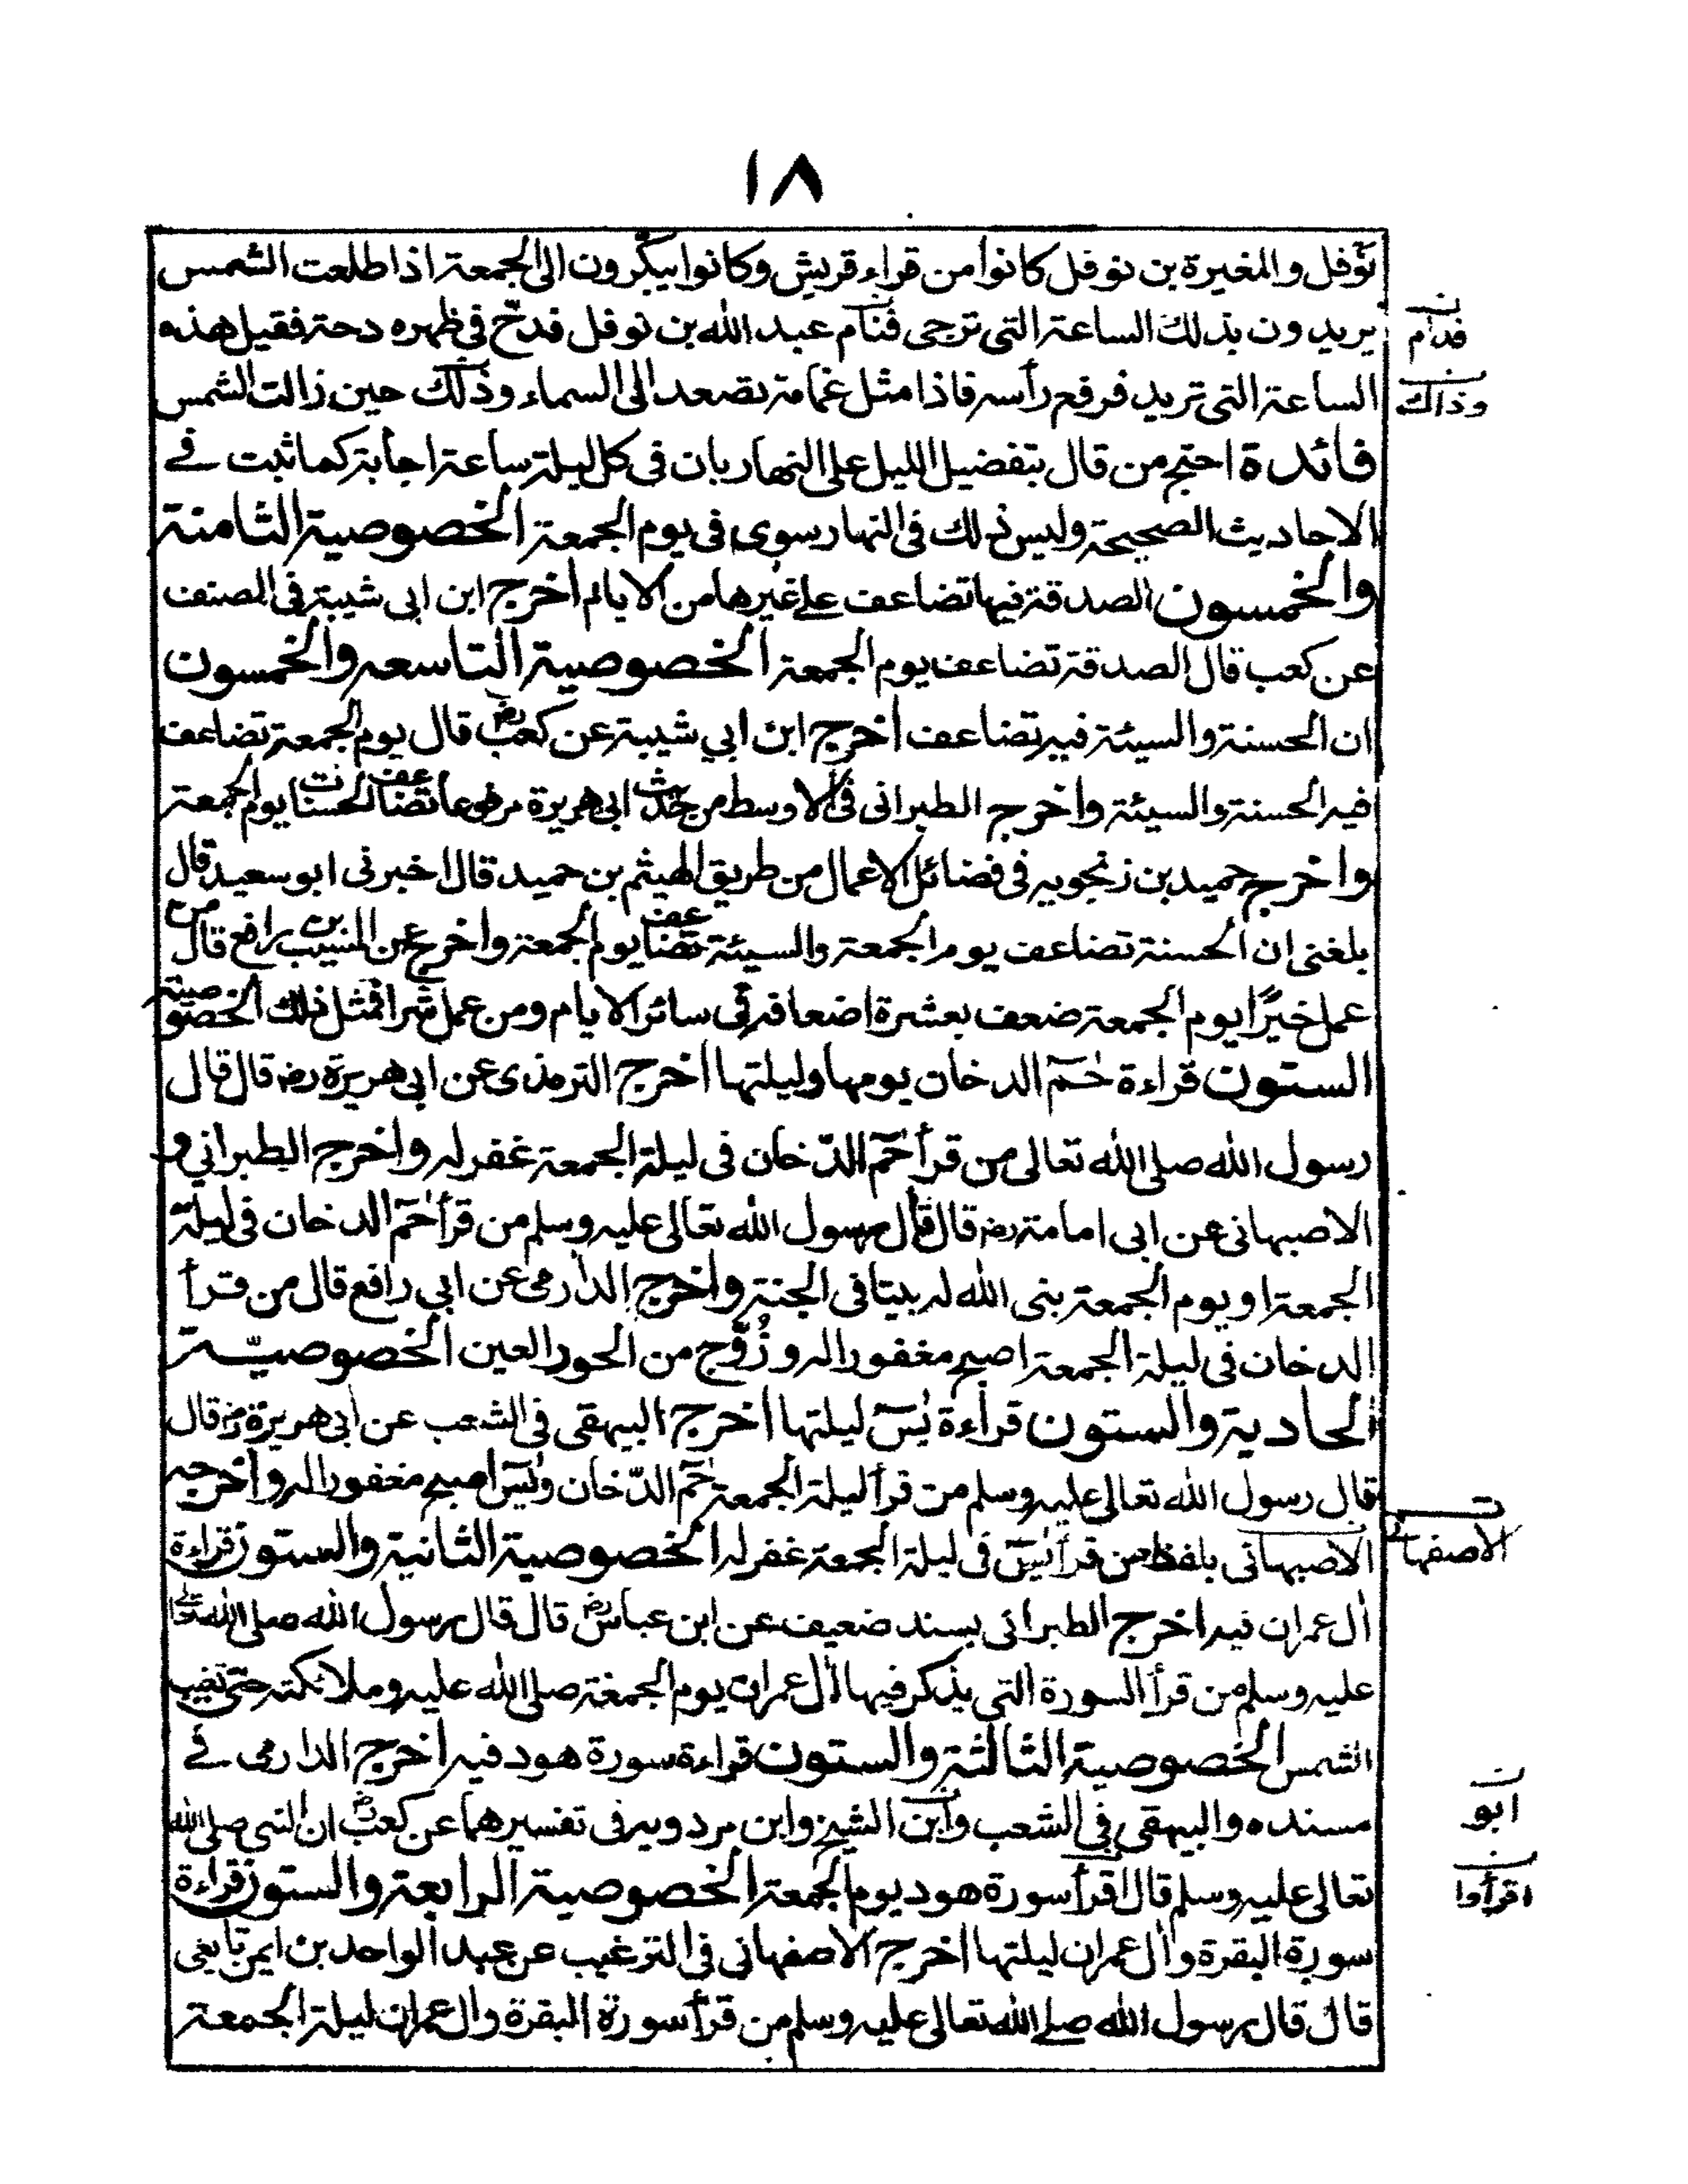 ١٨
نوفل والمغيرة بن نوفل كانوا من قراء قريش وكانوا يبكّرون الى الجمعة اذا طلعت الشمس
يريدون بذلك الساعة التى ترجى فنام عبد الله بن نوفل فدحّ فى ظهره دحة فقيل هذه
فدام
الساعة التى تريد فرفع رأسه فاذا مثل غمامة تصعد الى السماء وذلك حين زالت الشمس
وذالك
فائدة احتج من قال بتفضيل الليل على النهار بان فى كل ليلة ساعة اجابة كما ثبت فے
الاحاديث الصحيحة وليس ذلك فى النهار سوى فى يوم الجمعة الخصوصية الثامنة
والخمسون الصدقة فيها تضاعف علے غيرها من الايام اخرج ابن ابى شيبة فى المصنف
عن كعب قال الصدقة تضاعف يوم الجمعة الخصوصية التاسعه والخمسون
ان الحسنة والسيئة فيه تضاعف اخرج ابن ابي شيبة عن كعبؓ قال يوم الجمعة تضاعف
فيه الحسنة والسيئة واخرج الطبرانى فى الاوسط من حديث ابى هريرة مرفوعا تضاعف الحسنات يوم الجمعة
واخرج حميد بن زنجويه فى فضائل الاعمال من طريق الهيثم بن حميد قال اخبرنى ابو سعيد قال
بلغنى ان الحسنة تضاعف يوم الجمعة والسيئة تضاعف يوم الجمعة واخرج عن المسيب بن رافع قال من
عمل خيرًا يوم الجمعة ضعف بعشرة اضعافه فى سائر الايام ومن عمل شرا فمثل ذلك الخصوصية
الستون قراءة حٰمٓ الدخان يومها وليلتها اخرج الترمذى عن ابى هريرة رض قال قال
رسول الله صلى الله تعالى من قرأ حٰمٓ الدّخان فى ليلة الجمعة غفر له واخرج الطبراني و
الاصبهانى عن ابى امامة رض قال قال رسول الله تعالى عليه وسلم من قرأ حٰمٓ الدخان فى ليلة
الجمعة او يوم الجمعة بنى الله له بيتا فى الجنة واخرج الدارمى عن ابي رافع قال من قرأ
الدخان فى ليلة الجمعة اصبح مغفورا له وزُوّج من الحور العين الخصوصيّة
الحادية والستون قراءة يٰسٓ ليلتها اخرج البيهقى فى الشعب عن ابى هريرة رض قال
قال رسول الله تعالى عليه وسلم من قرأ ليلة الجمعة حٰمٓ الدّخان ويٰسٓ اصبح مغفورا له واخرجه
الاصبهانى بلفظ من قرأ يٰسٓ فى ليلة الجمعة غفر له الخصوصية الثانية والستون قراءة
الاصفهانى
اٰل عمران فيه اخرج الطبرانى بسند ضعيف عن ابن عباسؓ قال قال رسول الله صلى الله تعالے
عليه وسلم من قرأ السورة التي يذكر فيها اٰل عمران يوم الجمعة صلى الله عليه وملائكته حتى تغيب
الشمس الخصوصية الثالثة والستون قراءة سورة هود فيه اخرج الدارمى فے
مسنده والبيهقى فى الشعب وابن الشيخ وابن مردويه فى تفسيرهما عن كعبؓ ان النبى صلى الله
ابو
تعالى عليه وسلم قال اقرأ سورة هود يوم الجمعة الخصوصية الرابعة والستون قراءة
اقرأوا
سورة البقرة واٰل عمران ليلتها اخرج الاصفهانى فى الترغيب عن عبد الواحد بن ايمن تابعى
قال قال رسول الله صلے الله تعالى عليه وسلم من قرأ سورة البقرة وال عمران ليلة الجمعة